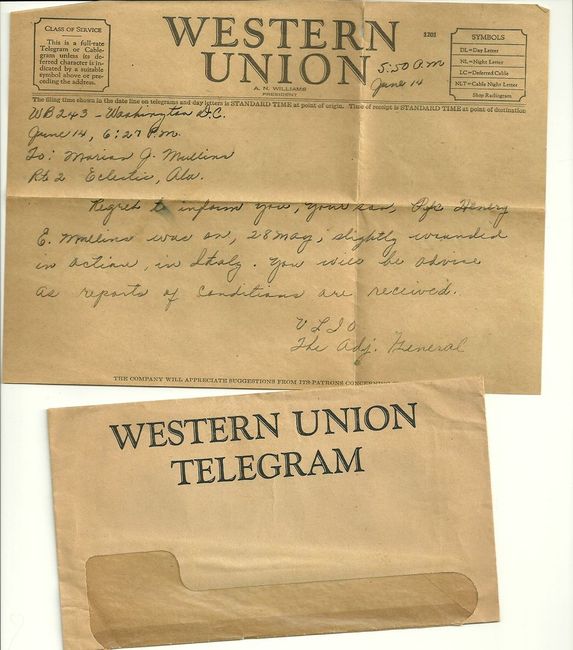 CLASS OF SERVICE
This is a full-rate
Telegram or Cable-
gram unless its de-
ferred character is in-
dicated by a suitable
symbol above or pre-
ceding the address.
WESTERN
UNION
A. N. WILLIAMS
PRESIDENT
1201
5:50 P.M
June 14
SYMBOLS
DL=Day Letter
NL=Night Letter
LC=Deferred Cable
NLT=Cable Night Letter
Ship Radiogram
The filing time shown in the date line on telegrams and day letters is STANDARD TIME at point of origin. Time of receipt is STANDARD TIME at point of destination
WB243 - Washington D.C.
June 14, 6:27 P.M.
To: Marian J. Mullins
Rte 2 Eclectic, Ala.
Regret to inform you, your son, Pfc Henry
E. Mullins was on, 28 May, slightly wounded
in actione, in Italy. You will be advise
as reports of conditions are received.
The Adj. General
THE COMPANY WILL APPRECIATE SUGGESTIONS FROM ITS PATRONS CONCERNING
WESTERN UNION
TELEGRAM